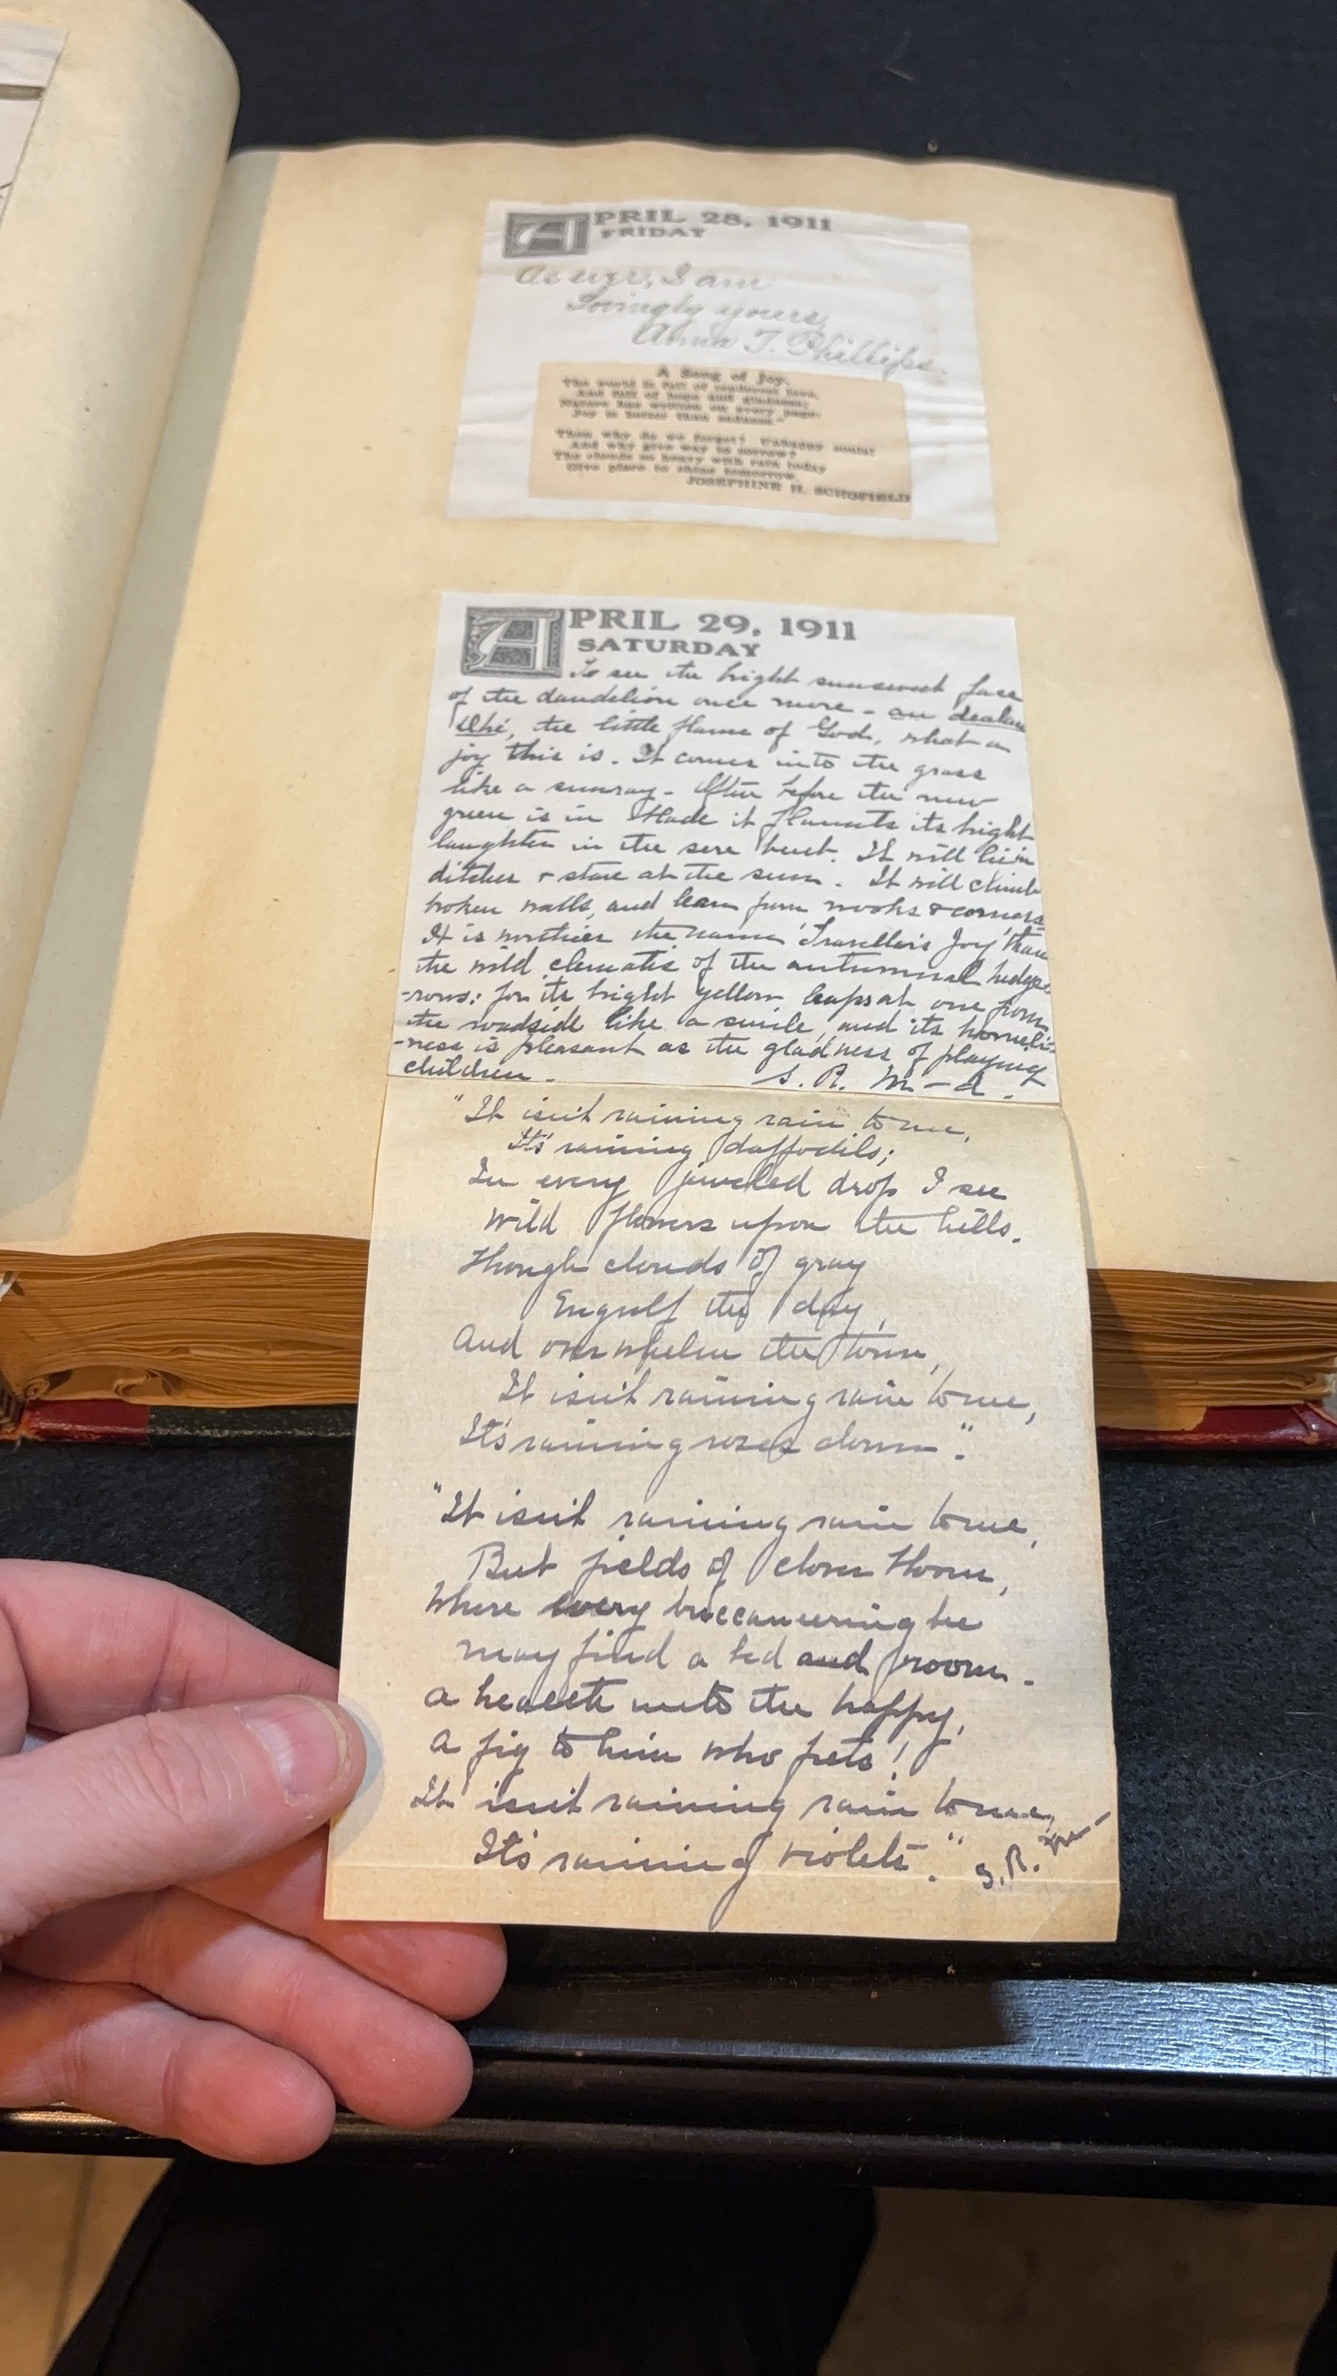 APRIL 28, 1911
FRIDAY
As ever, I am
Lovingly yours,
Anna T. Phillips.
A Song of Joy.
The world is full of love,
And full of hope and gladness;
Nature has written on every page:
Joy is better than sadness."
Then why do we forget? Unhappy souls!
And why give way to sorrow?
The clouds so heavy with rain today
Give place to shine tomorrow.
JOSEPHINE H. SCHOFIELD
APRIL 29, 1911
SATURDAY
To see the bright face
of the dandelion once more - an dealan
Dhé, the little flame of God, what a
joy this is. It comes into the grass
like a sunray. Often before the new
green is in blade it flaunts its bright
laughter in the sere bent. It will lie in
ditches & stare at the sun. It will climb
broken walls, and lean from nooks & corners
It is worthier the name 'Traveller's Joy' than
the wild clematis of the autumnal hedge
-rows: for its bright yellow leaps at one from
the roadside like a smile, and its homeli-
-ness is pleasant as the gladness of playing
children. S. R. M-d.
"It isn't raining rain to me,
It's raining daffodils;
In every jeweled drop I see
Wild flowers upon the hills.
Though clouds of gray
Engulf the day,
And overwhelm the town,
It isn't raining rain to me,
It's raining roses down."
"It isn't raining rain to me,
But fields of clover bloom,
Where every buccaneering bee
May find a bed and room.
A health unto the happy,
A fig to him who frets!
It isn't raining rain to me,
It's raining violets." S. R. M-